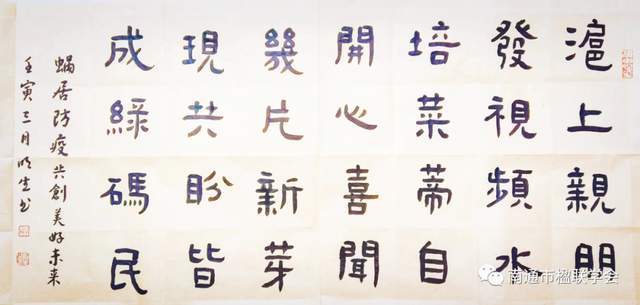 滬上親朋
發視頻水
培菜蒂自
開心喜聞
幾片新芽
現共盼皆
成綠碼民
蝸居防疫共創美好未来
壬寅三月
南通市楹联学会